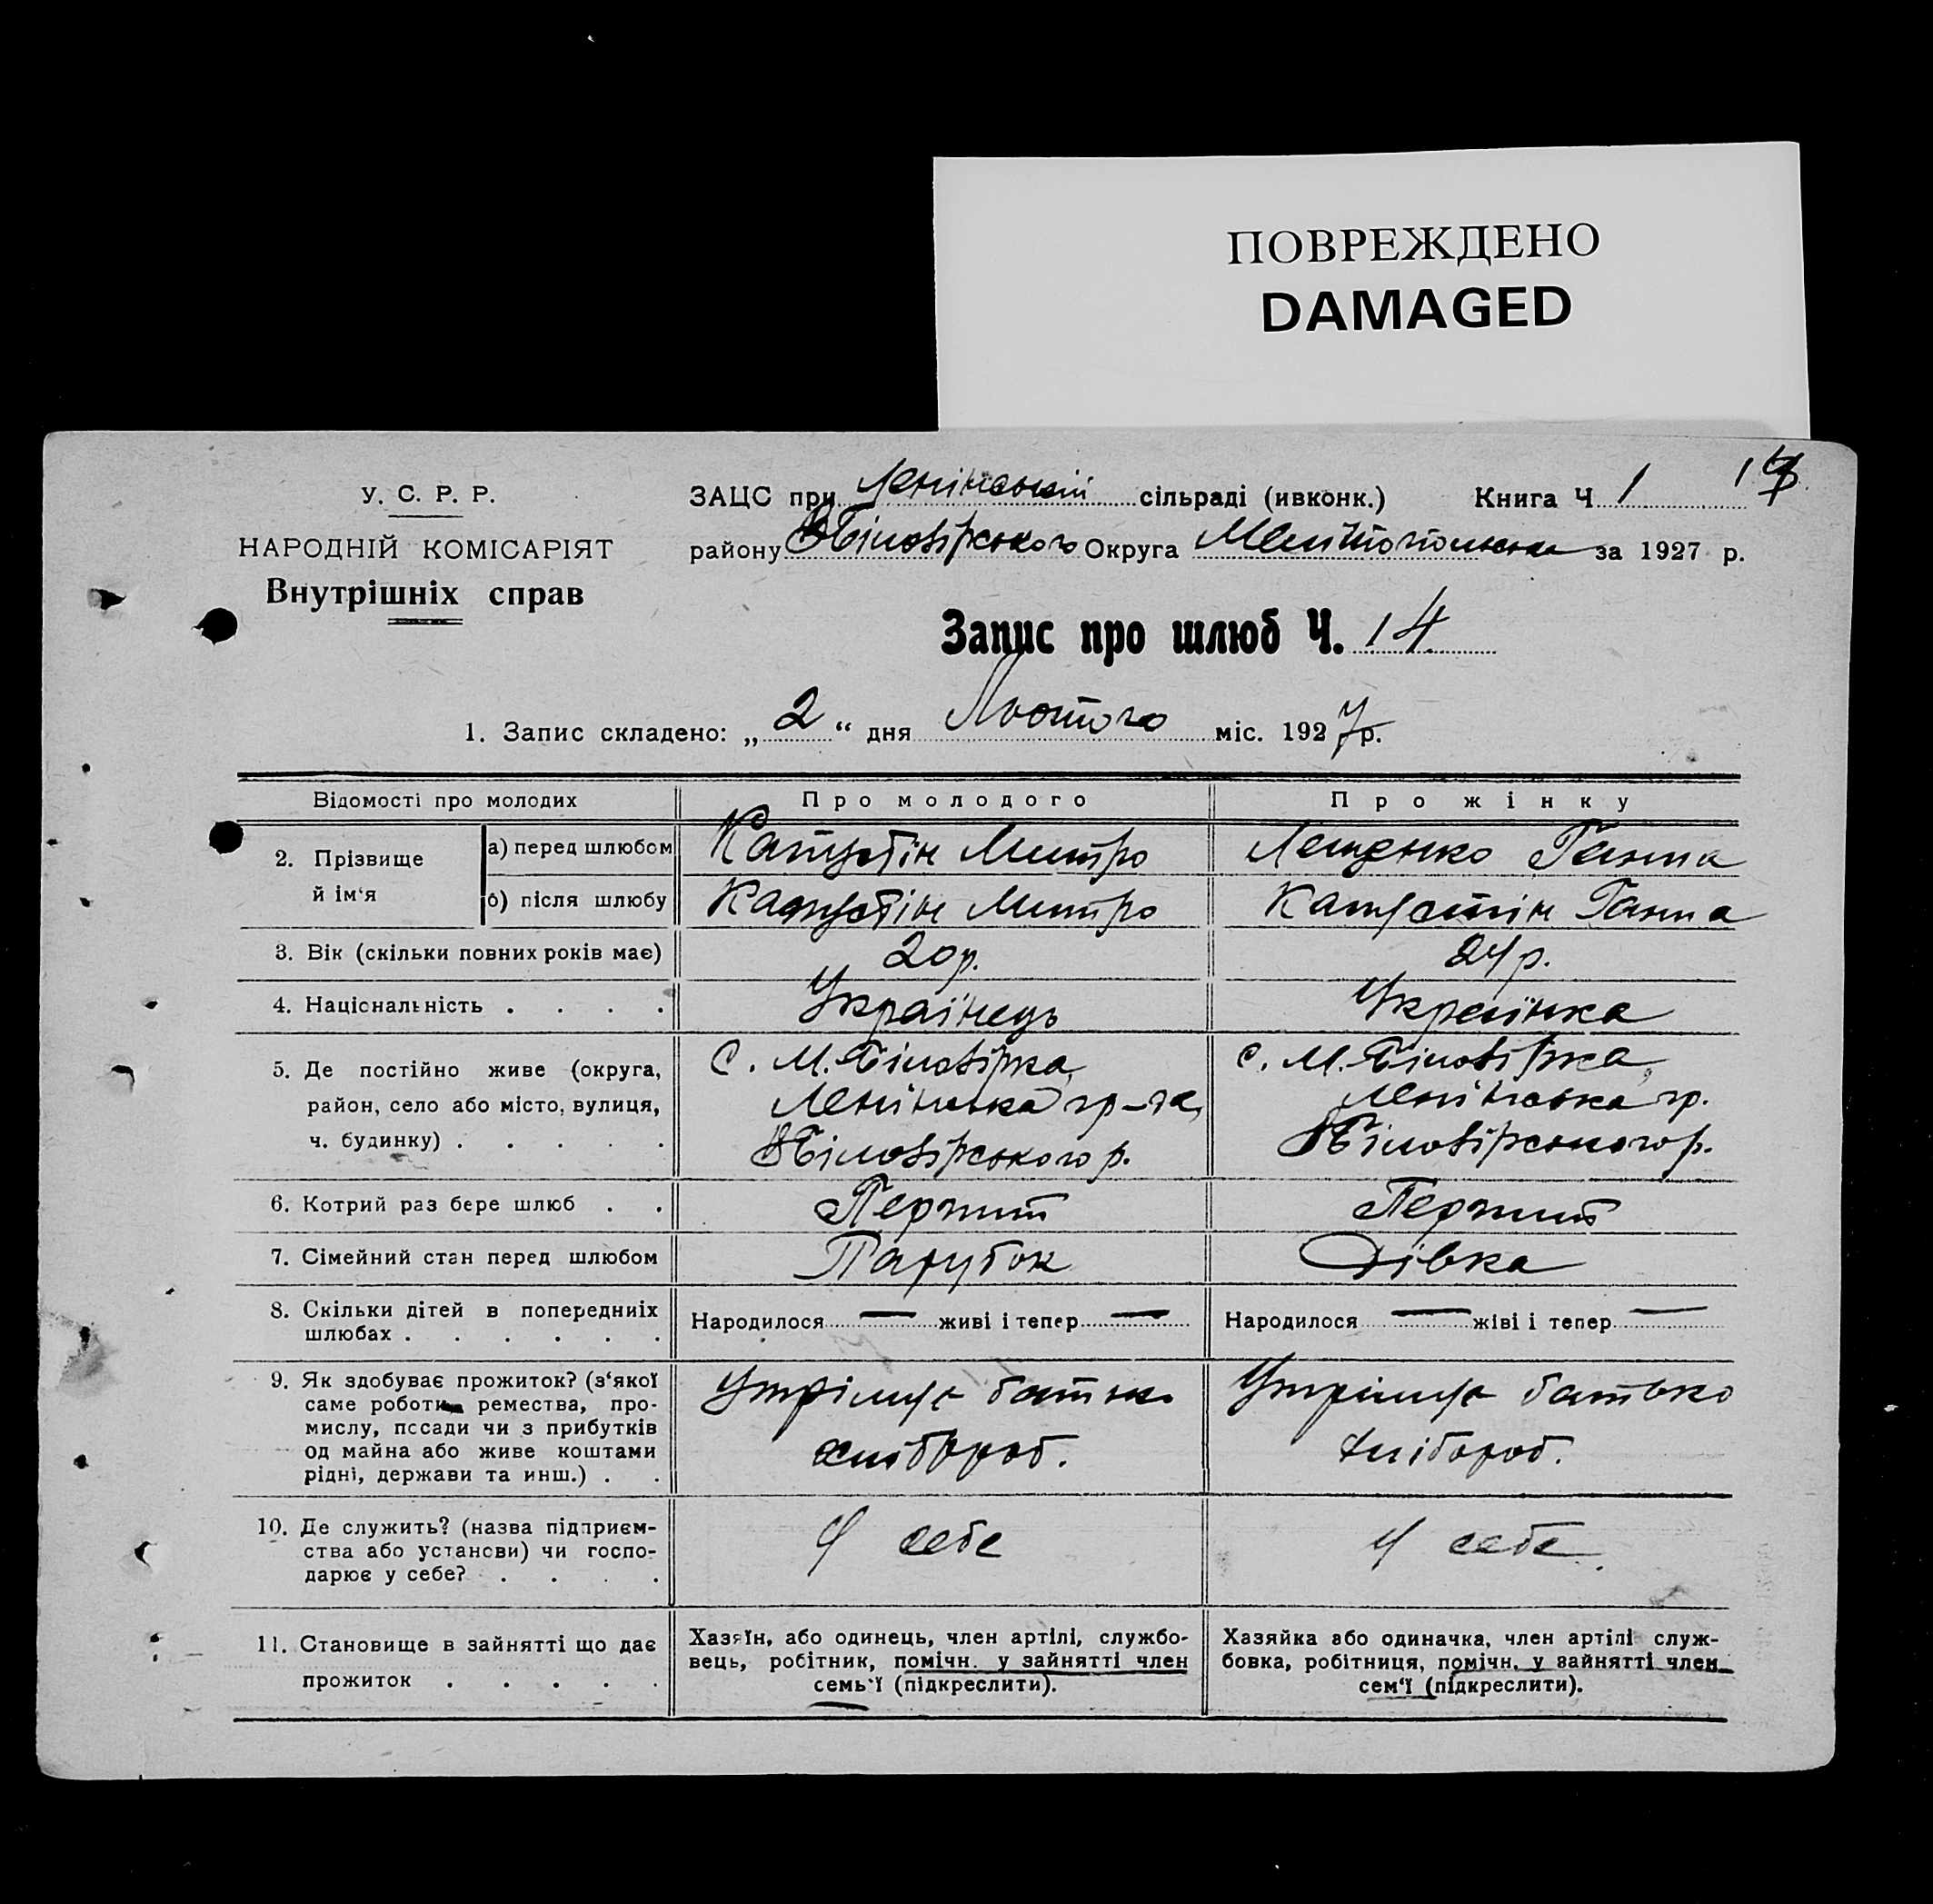 ПОВРЕЖДЕНО
DAMAGED
У. С. Р. Р.
НАРОДНІЙ КОМІСАРІЯТ
Внутрішніх справ
ЗАЦС при Ленінській сільраді (ивконк.) Книга Ч 1
району ВБілозірського Округа за 1927 р.
Запис про шлюб Ч. 14
1. Запис складено: „ 2 “ дня Лютого міс. 1927 р.
Відомості про молодих Про молодого Про жінку
2. Прізвище й ім‘я
а) перед шлюбом Капустін Митро Лещенко Ганна
б) після шлюбу Капустін Митро Капустін Ганна
3. Вік (скільки повних років має) 20 р. 24 р.
4. Національність . . . . Українець Українка
5. Де постійно живе (округа, С. М. Білозірка, с. М. Білозірка,
район, село або місто, вулиця, Ленінська гр-да, Ленінська гр.
ч. будинку) . . . . . ВБілозірського р. ВБілозірського р.
6. Котрий раз бере шлюб . . Перший Перший
7. Сімейний стан перед шлюбом Парубок Дівка
8. Скільки дітей в попередниіх шлюбах . . . . . .
Народилося — живі і тепер — Народилося — жіві і тепер —
9. Як здобуває прожиток? (з‘якої
саме роботи, ремества, про-
мислу, посади чи з прибутків
од майна або живе коштами
рідні, держави та инш.) . .
Утрімує батько Утрімує батько
хлібороб. хлібороб.
10. Де служить? (назва підприєм-
ства або установи) чи госпо-
дарює у себе? . . . .
У себе У себе.
11. Становище в зайнятті що дає
прожиток . . . . .
Хазяїн, або одинець, член артілі, службо-
вець, робітник, помічн. у зайнятті член
семь‘ї (підкреслити).
Хазяйка або одиначка, член артілі служ-
бовка, робітниця, помічн. у зайнятті член
сем‘ї (підкреслити).